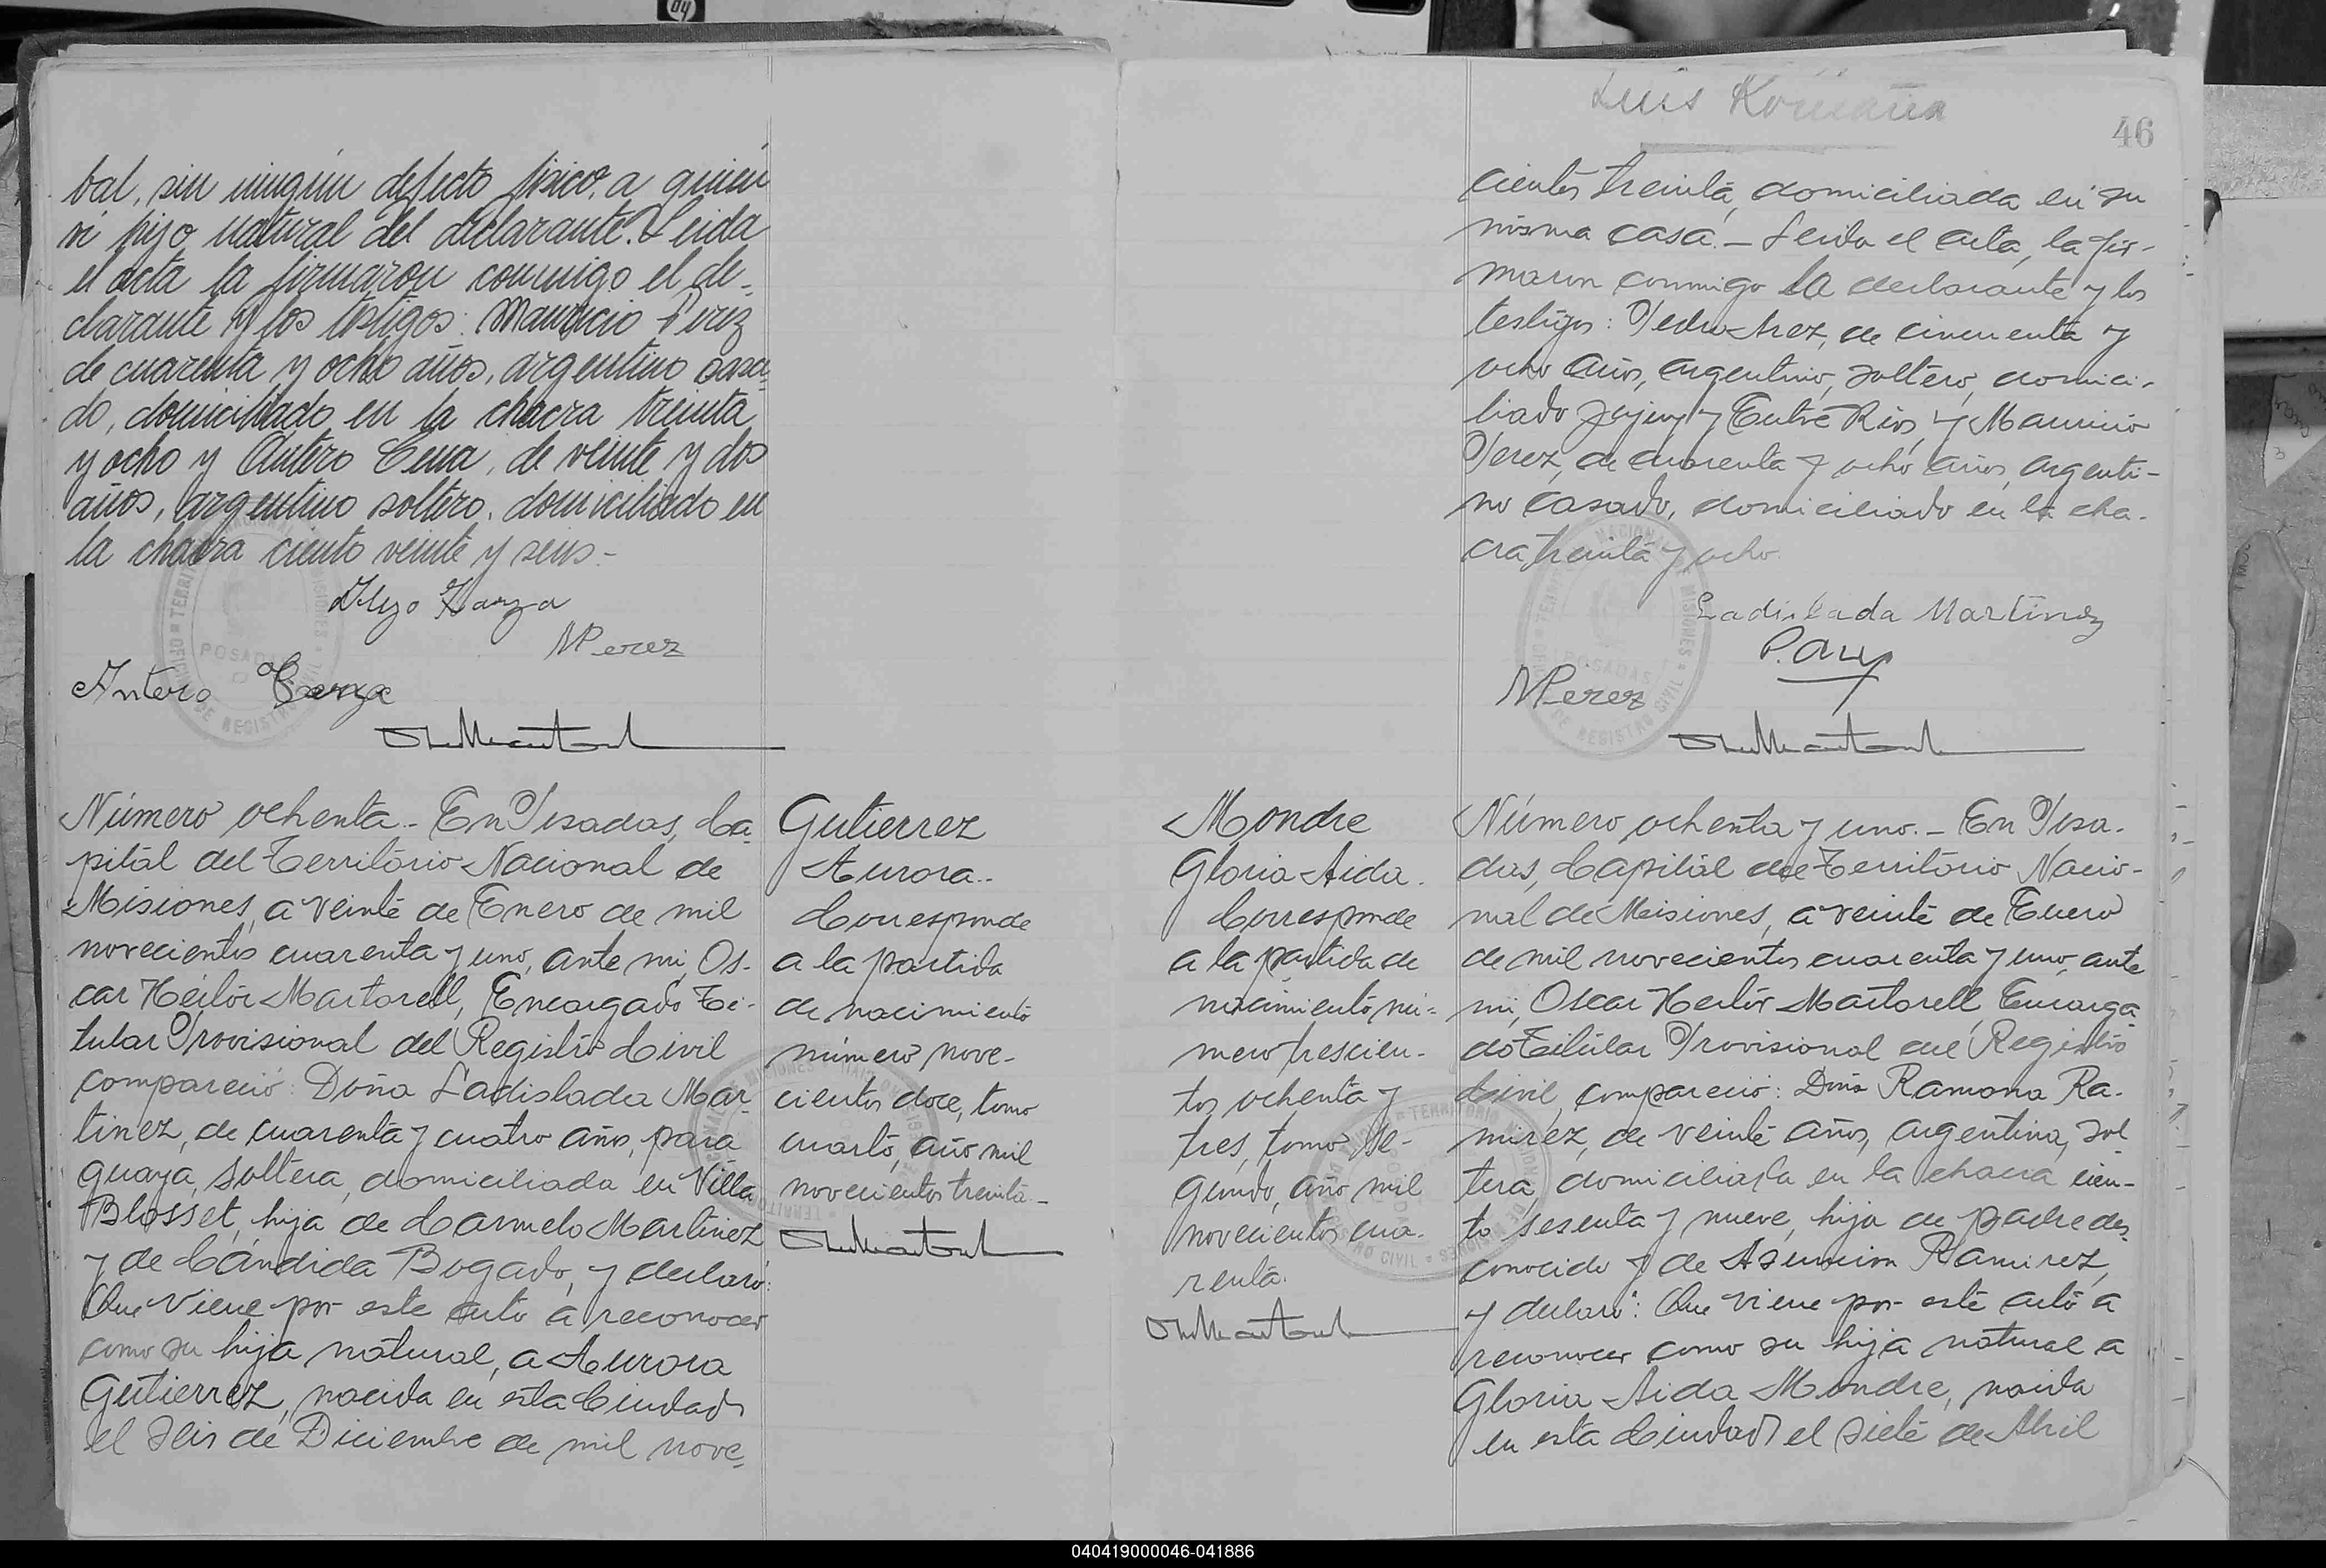 tal, sin ningún defecto físico, a quien
vi hijo natural del declarante. Leida
el acta la firmaron conmigo el de-
clarante y los testigos: Mauricio Perez
de cuarenta y ocho años, argentino casa-
do, domiciliado en la chacra treinta
y ocho y Antero Cena, de veinte y dos
años, argentino soltero, domiciliado en
la chacra ciento veinte y seis-
MPerez
Antero
POSADAS
Número ochenta.- En Posadas, Ca-
pital del Territorio Nacional de
Misiones, a veinte de Enero de mil
novecientos cuarenta y uno, ante mi, Os-
car Heitór Martorell, Encargado Ti-
tular Provisional del Registro Civil
compareció: Doña Ladislada Mar-
tinez, de cuarenta y cuatro años, para
guaya, soltera, domiciliada en Villa
Blosset, hija de Carmelo Martinez
y de Cándida Bogado, y declaró:
Que viene por este acto a reconocer
como su hija natural, a Aurora
Gutierrez, nacida en esta Ciudad
el seis de Diciembre de mil nove-
Gutierrez
Aurora..
Corresponde
a la partida
de nacimiento
número nove-
cientos doce, tomo
cuarto, año mil
novecientos treinta.-
Luis Romaña
46
cientos treinta, domiciliada en su
misma casa.- Leida el acta, la fir-
maron conmigo la declarante y los
testigos: Pedro Arez, de cincuenta y
ocho años, argentino, soltero, domici-
liado Jujuy y Entre Rios, y Mauricio
Perez, de cuarenta y ocho años, argenti-
no casado, domiciliado en la cha-
cra treinta y ocho.
Ladislada Martinez
MPerez
Mondre
Gloria Aida.
Corresponde
a la partida de
nacimiento nú-
mero trescien-
tos ochenta y
tres, tomo se-
gundo, año mil
novecientos cua-
renta.
Número ochenta y uno.- En Posa-
das, Capital del Territorio Nacio-
nal de Misiones, a veinte de Enero
de mil novecientos cuarenta y uno, ante
mi, Oscar Heitór Martorell, Encarga-
do Titular Provisional del Registro
Civil, compareció: Doña Ramona Ra-
mirez, de veinte años, argentina, sol
tera, domiciliada en la chacra cien-
to sesenta y nueve, hija de padre des
conocido y de Asuncion Ramirez,
y declaró: Que viene por este acto a
reconocer como su hija natural a
Gloria Aida Mondre, nacida
en esta Ciudad el siete de Abril
040419000046-041886